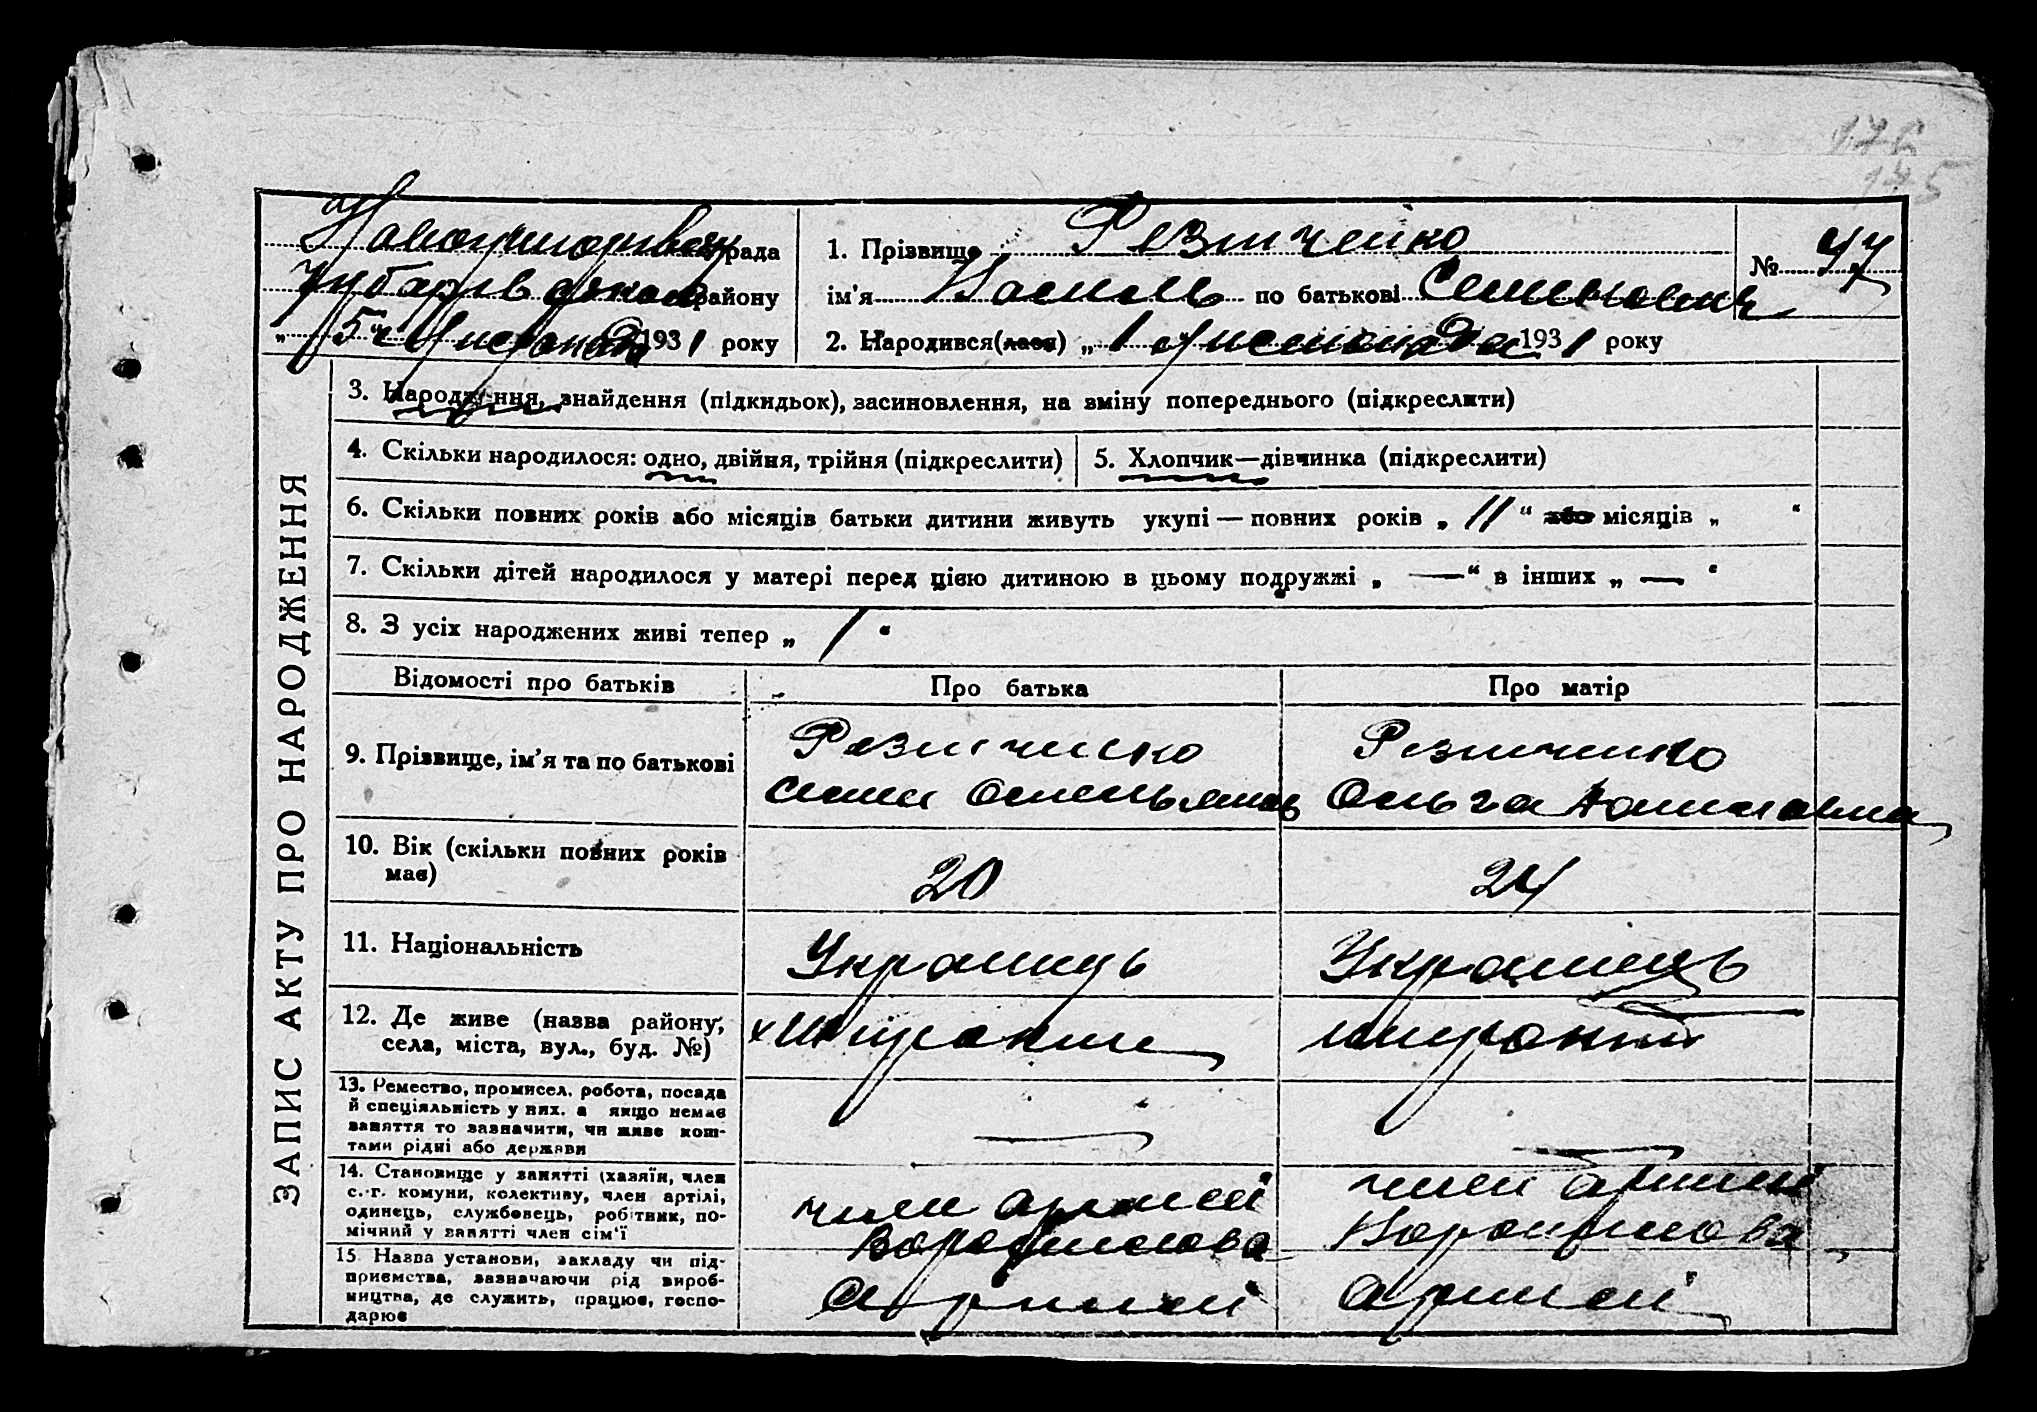 176
175
рада
району
„ 5 " Листопада 1931 року
1. Прізвище Резниченко
ім'я Василь по батькові Семенович
№ 47
2. Народився(лася) „ 1 Листопада 1931 року
ЗАПИС АКТУ ПРО НАРОДЖЕННЯ
3. Народження, знайдення (підкидьок), засиновлення, на зміну попереднього (підкреслити)
4. Скільки народилося: одно, двійня, трійня (підкреслити)
5. Хлопчик—дівчинка (підкреслити)
6. Скільки повних років або місяців батьки дитини живуть укупі — повних років „ 11 “ або місяців „ “
7. Скільки дітей народилося у матері перед цією дитиною в цьому подружжі „ — “ в інших „ — “
8. З усіх народжених живі тепер „ 1 “
Відомості про батьків
Про батька
Про матір
9. Прізвище, ім'я та по батькові
Резниченко
Семен Омельянов
Резниченко
Ольга
10. Вік (скільки повних років
має)
20
24
11. Національність
Українець
Українець
12. Де живе (назва району,
села, міста, вул., буд. №)
х Широкий
Широкий
13. Ремество, промисел, робота, посада
й спеціяльність у них, а якщо немає
заняття то зазначити, чи живе кош-
тами рідні або держави
—
—
14. Становище у занятті (хазяїн, член
с.-г. комуни, колективу, член артілі,
одинець, службовець, робітник, по-
мічний у занятті член сім'ї
член артілі
Ворошилова
член артілі
Ворошилова
15. Назва установи, закладу чи під-
приємства, зазначаючи рід вироб-
ництва, де служить, працює, госпо-
дарює
Артілі
Артілі